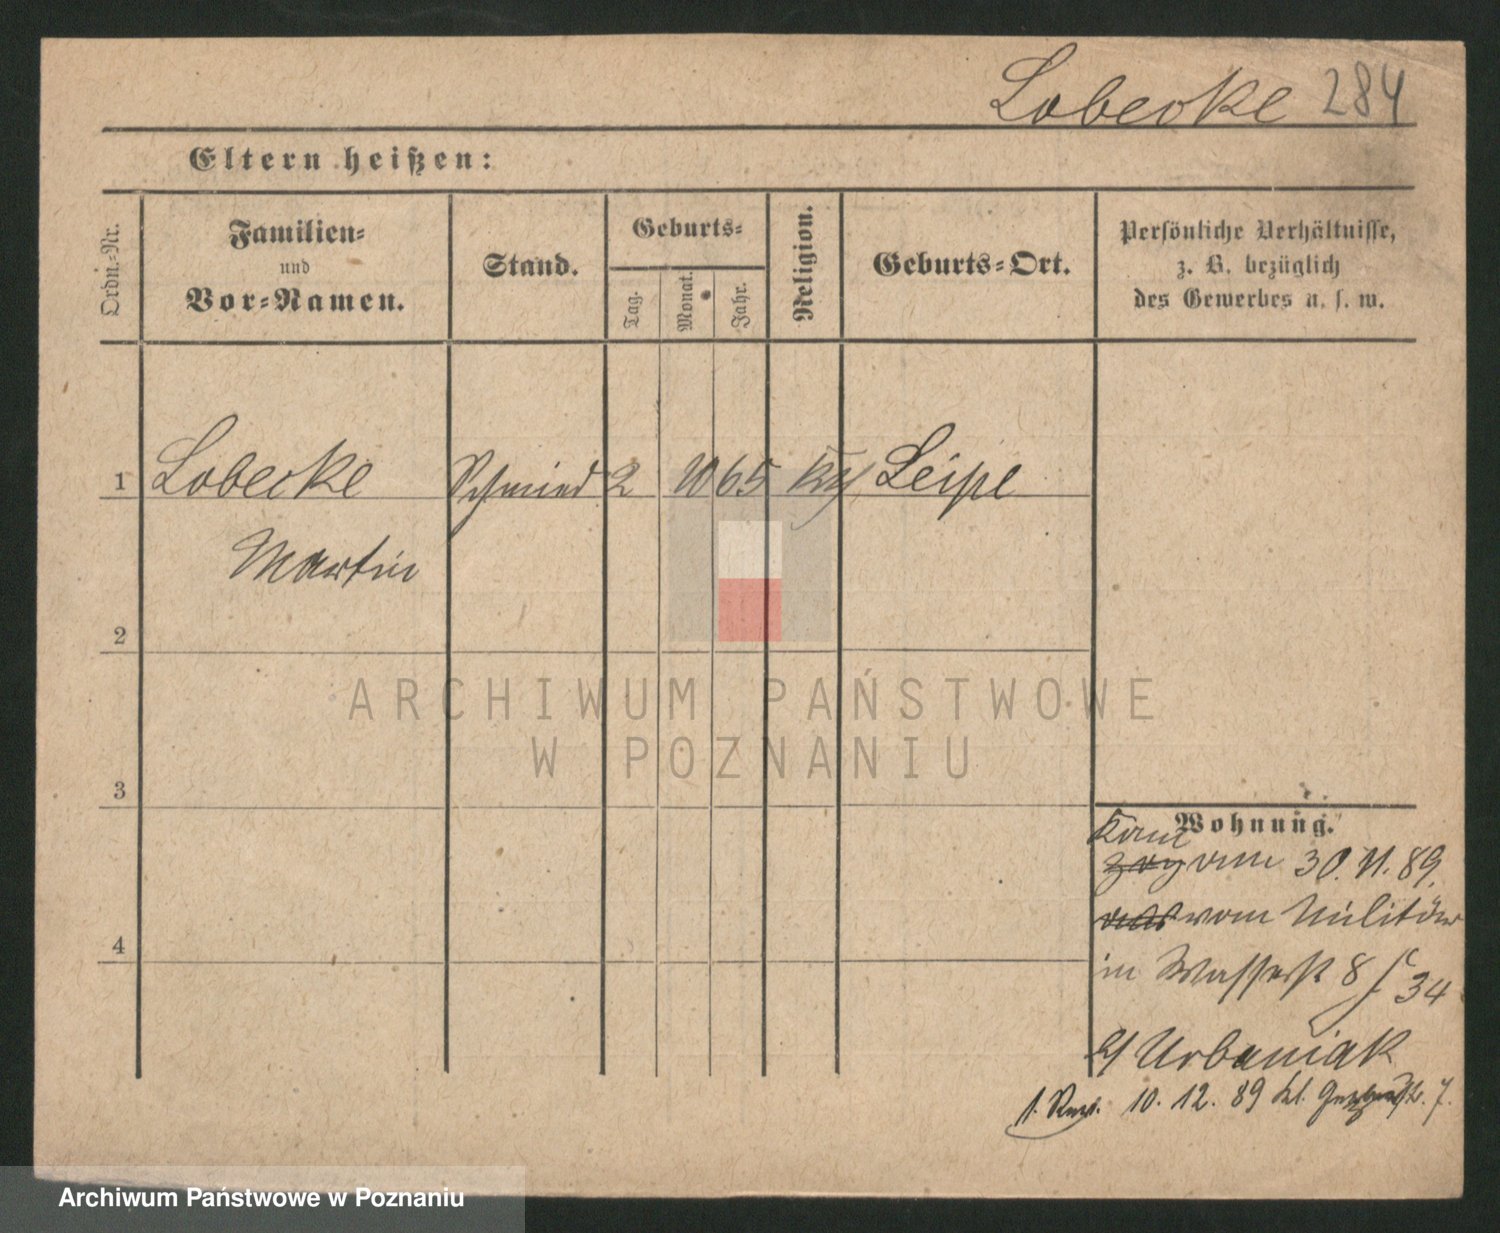 Lobecke 284
Eltern heißen:
Ordn.-Nr.
Familien-
und
Vor-Namen.
Stand.
Geburts-
Tag.
Monat.
Jahr.
Religion.
Geburts-Ort.
Persönliche Verhältnisse,
z. B. bezüglich
des Gewerbes u. s. w.
1 Lobecke Schmied 2 10 65 Leipe
Martin
2
3
4
ARCHIWUM PAŃSTWOWE
W POZNANIU
Wohnung.
Kam
zog am 30. 11. 89.
vom Militär
in Wasserst 8 34
b/ Urbaniak
10. 12. 89 Kl. Gerberstr. 7.
Archiwum Państwowe w Poznaniu